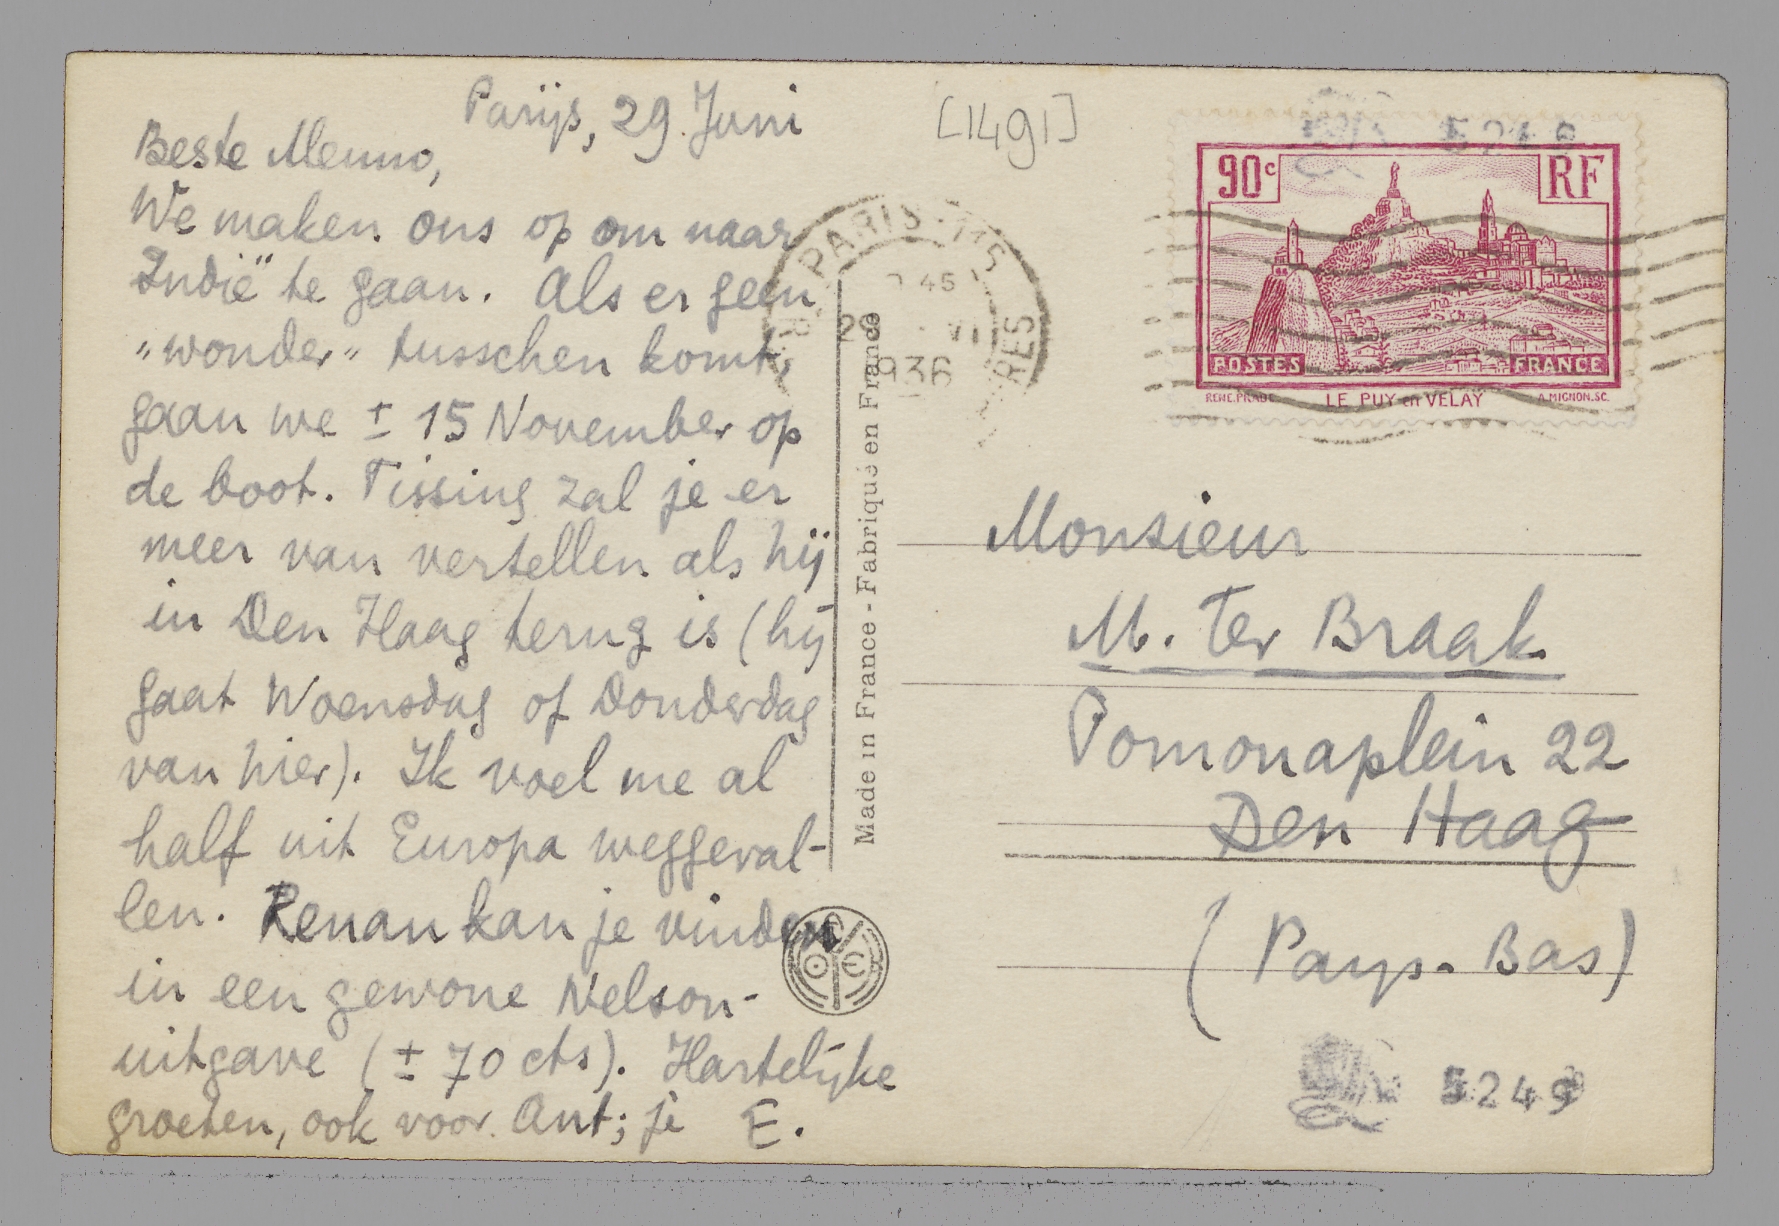 Parijs, 29 Juni
Beste Menno,
We maken ons op om naar
Indië te gaan. Als er geen
"wonder" tusschen komt,
gaan we ± 15 November op
de boot. Tissing zal je er
meer van vertellen als hij
in Den Haag terug is (hij
gaat Woensdag of Donderdag
van hier). Ik voel me al
half uit Europa weggeval-
len. Renan kan je vinden
in een gewone Nelson-
uitgave (± 70 cts). Hartelijke
groeten, ook voor Ant; je E.
[1491]
PARIS 115
45
29 VI
1936
Made in France - Fabriqué en France
90c RF
POSTES FRANCE
RENE.PRADE LE PUY en VELAY A.MIGNON.SC.
Monsieur
M. Ter Braak
Pomonaplein 22
Den Haag
(Pays-Bas)
5249